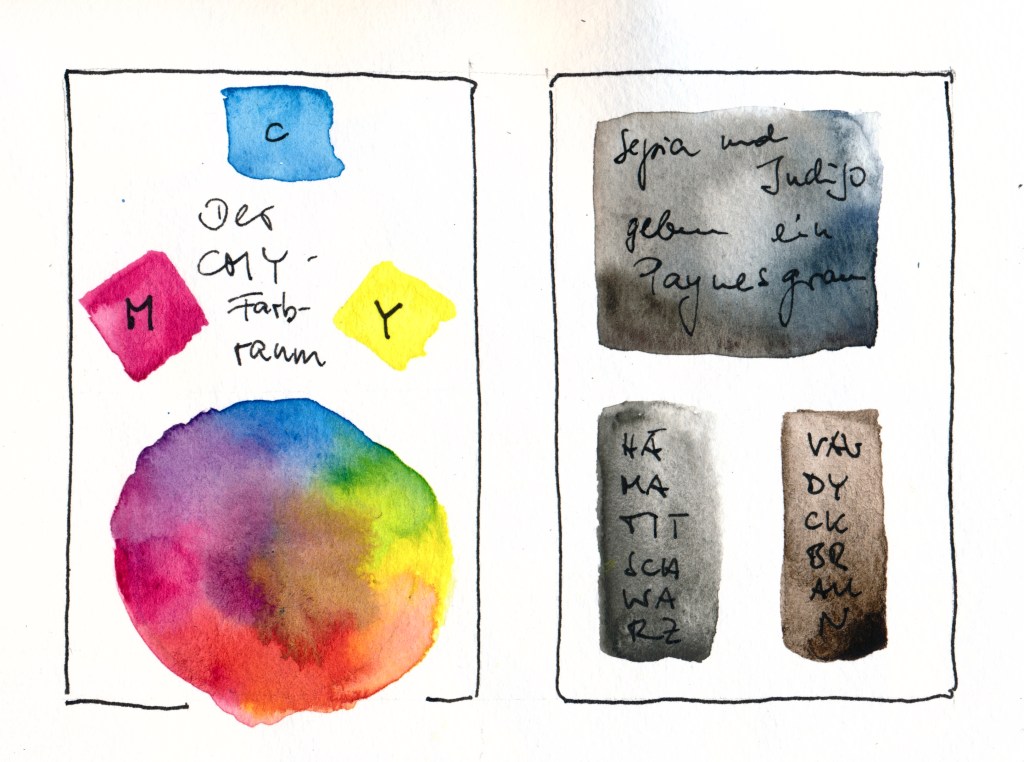 C
Der
CMY-
Farb-
raum
M
Y
Sepia und
Indigo
geben ein
Paynesgrau
HÄ
MA
TIT
SCH
WA
RZ
VAN
DY
CK
BR
AU
N